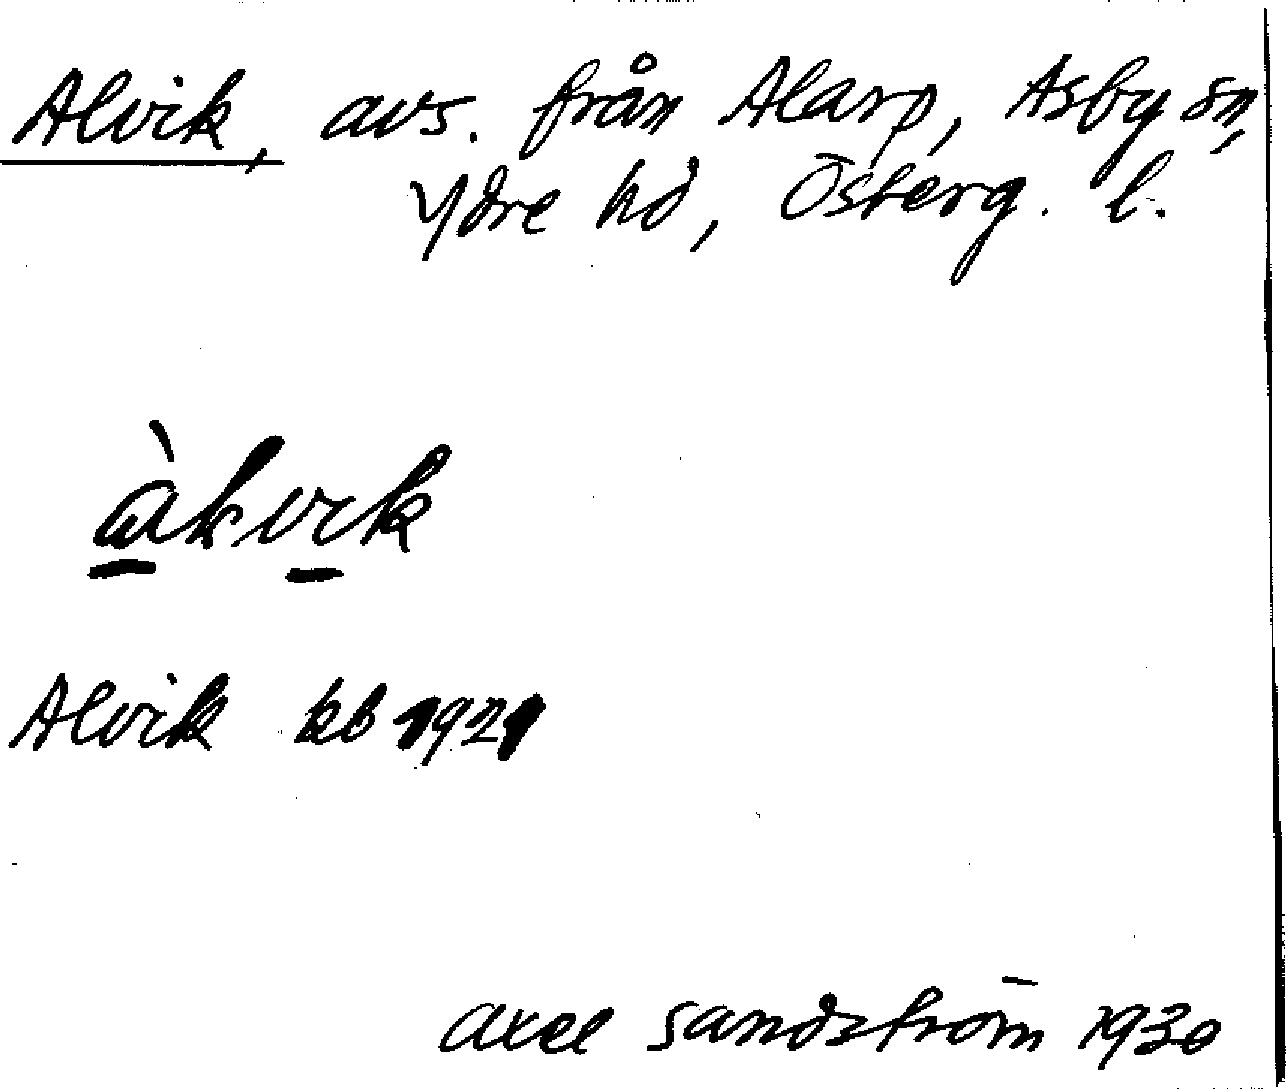 Alvik, avs. från Alarp, Asby sn,
Ydre hd, Österg. l.
àlvik
Alvik kb 1921
Axel Sandström 1930